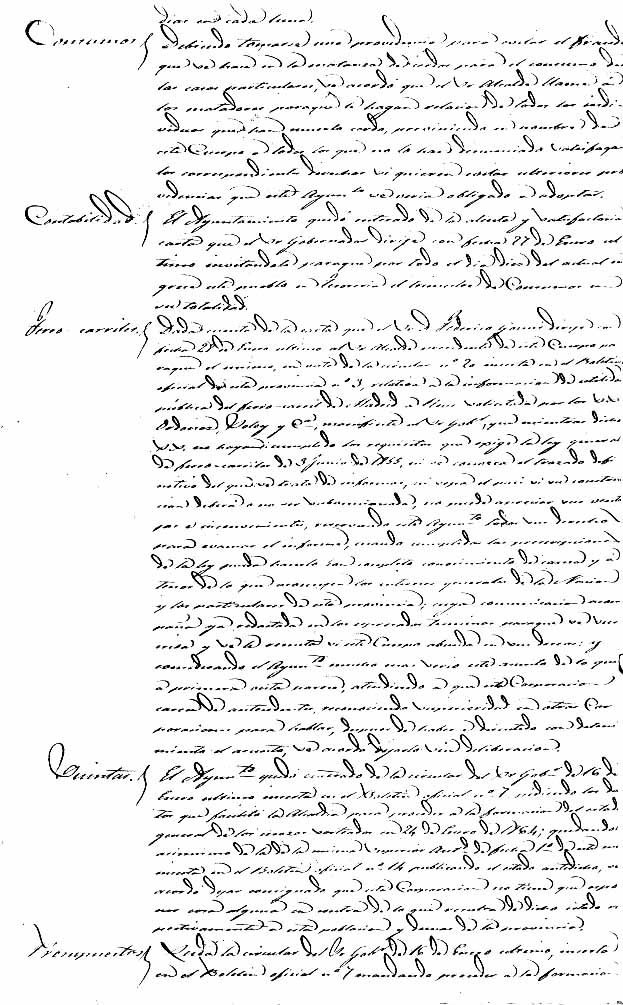 dias en cada finca.
Consumos } Debiendo tomarse una providencia para evitar el fraude
que se hace en la matanza de cerdos para el consumo de
las casas particulares, se acordó que el Sr Alcalde llame a
los matadores paraque le hagan relacion de todos los indi-
viduos que han muerto cerdo, previniendo en nombre de
este Cuerpo a todos los que no lo han denunciado satisfagan
los correspondientes derechos si quieren evitar ulteriores pro-
videncias que este Ayunto se veria obligado a adoptar.
Contabilidad } El Ayuntamiento quedó enterado de la atenta y satisfactoria
carta que el Sr Gobernador dirije con fecha 27 de Enero úl-
timo invitandole paraque por todo el dia diez del actual in-
grese este pueblo en Tesoreria el trimestre de Consumos en
su totalidad.
Ferro carriles } Dada cuenta de la carta que el Sr D. Federico dirije con
fecha 28 de Enero ultimo al Sr Alcalde presidente de este Cuerpo pa-
raque el mismo, en vista de la circular nº 20 inserta en el Boletin
oficial de esta provincia nº 3, relativa a la informacion de utilidad
pública del ferro-carril de Madrid a solicitada por los SS.
y Ca, manifieste al Sr Gobr, que mientras dichos
SS. no hayan cumplido los requisitos que exige la ley general
de ferro-carriles de 3 Junio de 1855, ni se conozca el trazado defi-
nitivo del que se trata de informar, ni sepa el si su construc-
cion deberá o no ser subvencionada, no puede apreciar sus venta-
jas e inconvenientes, reservando este Ayunto todos sus derechos
para evacuar el informe, cuando cumplidas las prescripciones
de la ley pueda hacerlo con completo conocimiento de causa y a
tenor de lo que aconsejen los intereses generales de la Nacion
y los particulares de esta provincia; cuya comunicacion acom-
paña ya redactada en los espresados terminos paraque se sus-
criba y se le remita si este Cuerpo abunda en sus ideas; y
considerando el Ayunto mucho mas serio este asunto de lo que
a primera vista parece, atendiendo a que esta Corporacion
carece de antecedentes, reconociendo superioridad en otras Cor-
poraciones para hablar, despues de haber discutido con deteni-
miento el asunto, se acordó dejarlo sin deliberacion.
Quintas. } El Ayunto quedó enterado de la circular del Sr Gobr de 16 de
Enero ultimo inserta en el Boletin oficial nº 7 pidiendo los da-
tos que facilitó la Alcaldia para proceder a la formacion del estado
general de los mozos sorteados en 24 de Enero de 1864; quedando
asimismo de la de la misma superior Autd de fecha 1º de
inserta en el Boletin oficial nº 14 publicando el estado antedicho, se
acordó dejar consignado que esta Corporacion no tiene que espo-
ner cosa alguna en contra de lo que resulta de dicho estado res-
pectivamente a esta poblacion y demas de la provincia.
Presupuestos } Leida la circular del Sr Gobr de 16 de Enero ultimo, inserta
en el Boletin oficial nº 7 mandando proceder a la formacion